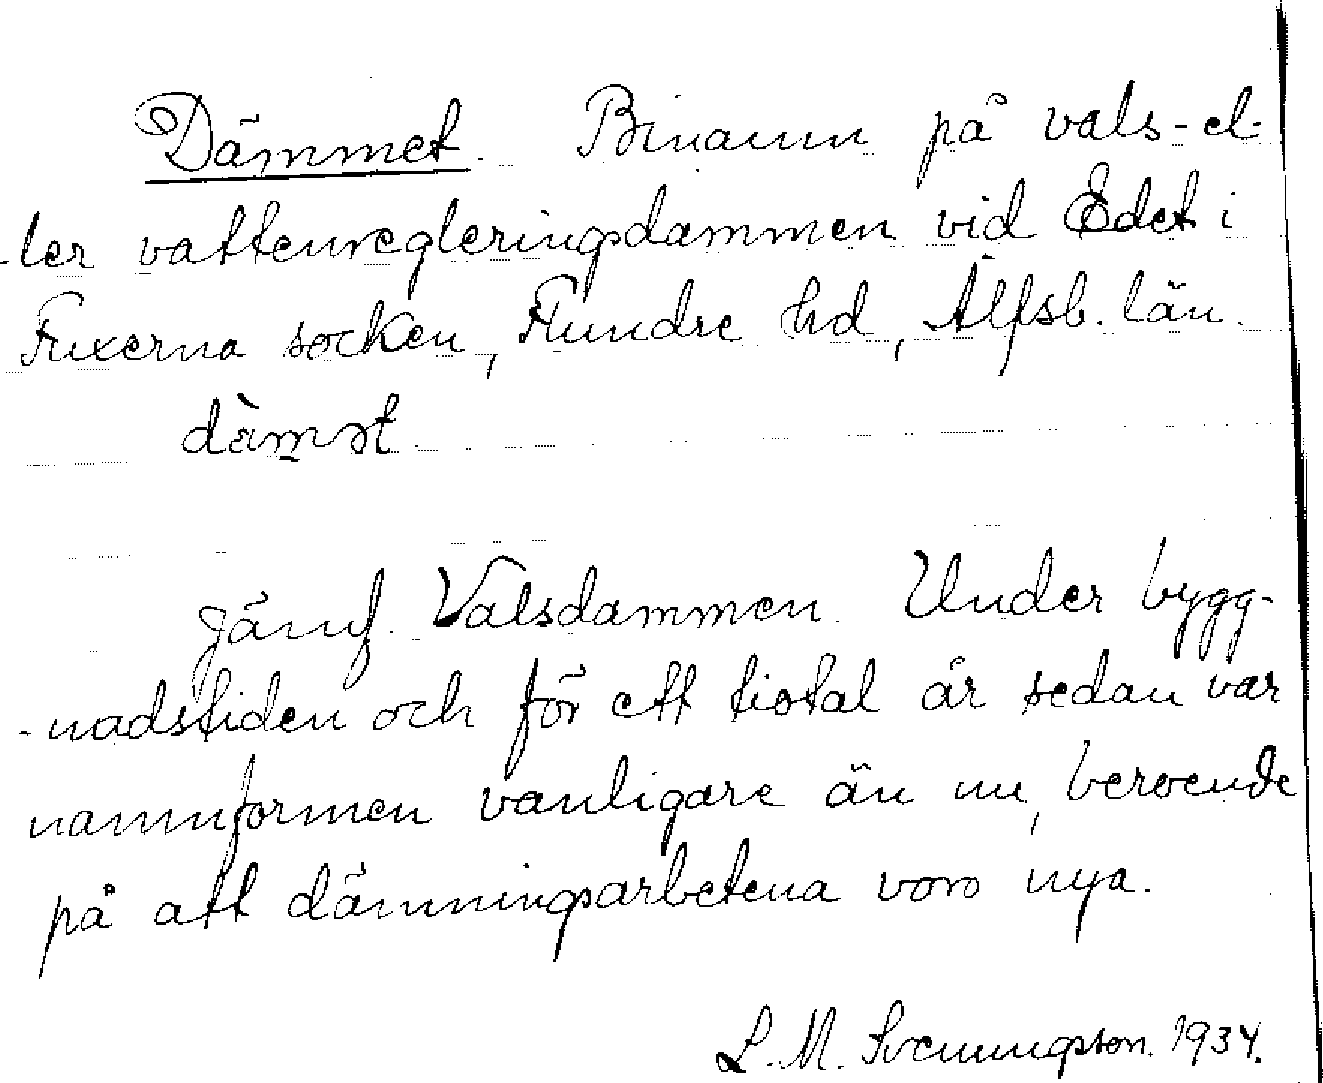 Dämmet. Binamn på vals- el-
ler vattenregleringsdammen vid Edet i
Fuxerna socken, Flundre hd, Älfsb. län.
dämst
Jämf. Valsdammen. Under bygg-
nadstiden och för ett tiotal år sedan var
namnformen vanligare än nu, beroende
på att dämningsarbetena voro nya.
L. M. Svenungsson. 1934.